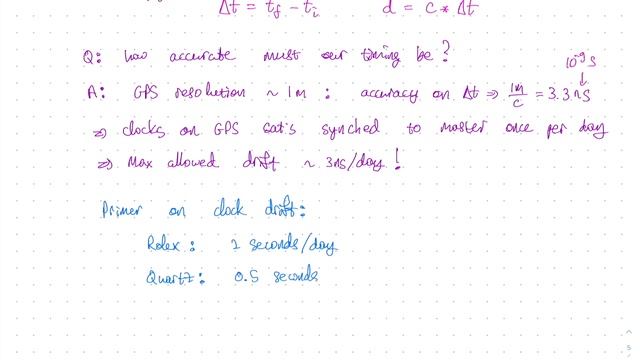 Δt = t_f - t_i    d = c * Δt
Q: how accurate must our timing be?
10⁻⁹ s
A: GPS resolution ~ 1m : accuracy on Δt ⇒ 1m/c = 3.3 ns
⇒ clocks on GPS sat's synched to master once per day
⇒ Max allowed drift ~ 3ns/day!
Primer on clock drift:
Rolex: 2 seconds/day
Quartz: 0.5 seconds